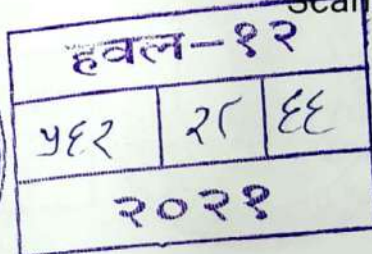 Scan
हवल-१२
५६२ २८ ६६
२०२१